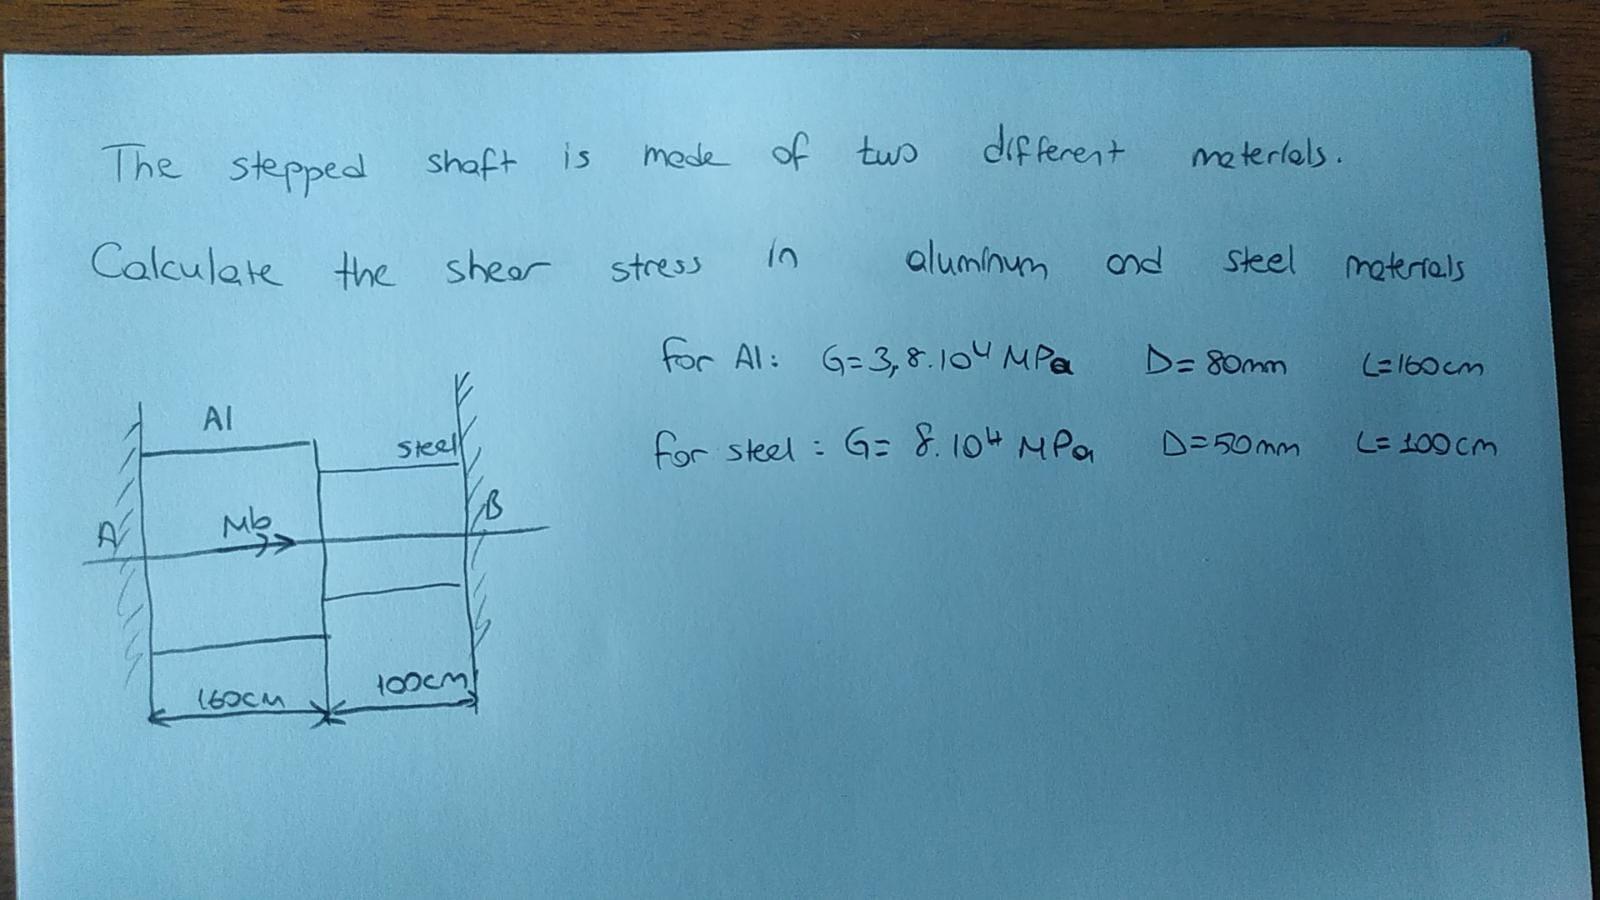 The stepped shaft is made of two different materials.
Calculate the shear stress in aluminum and steel materials
for Al: G=3,8.10⁴ MPa D=80mm L=160cm
for steel: G= 8.10⁴ MPa D=50mm L=100cm
Al
steel
A
Mb
B
160cm
100cm